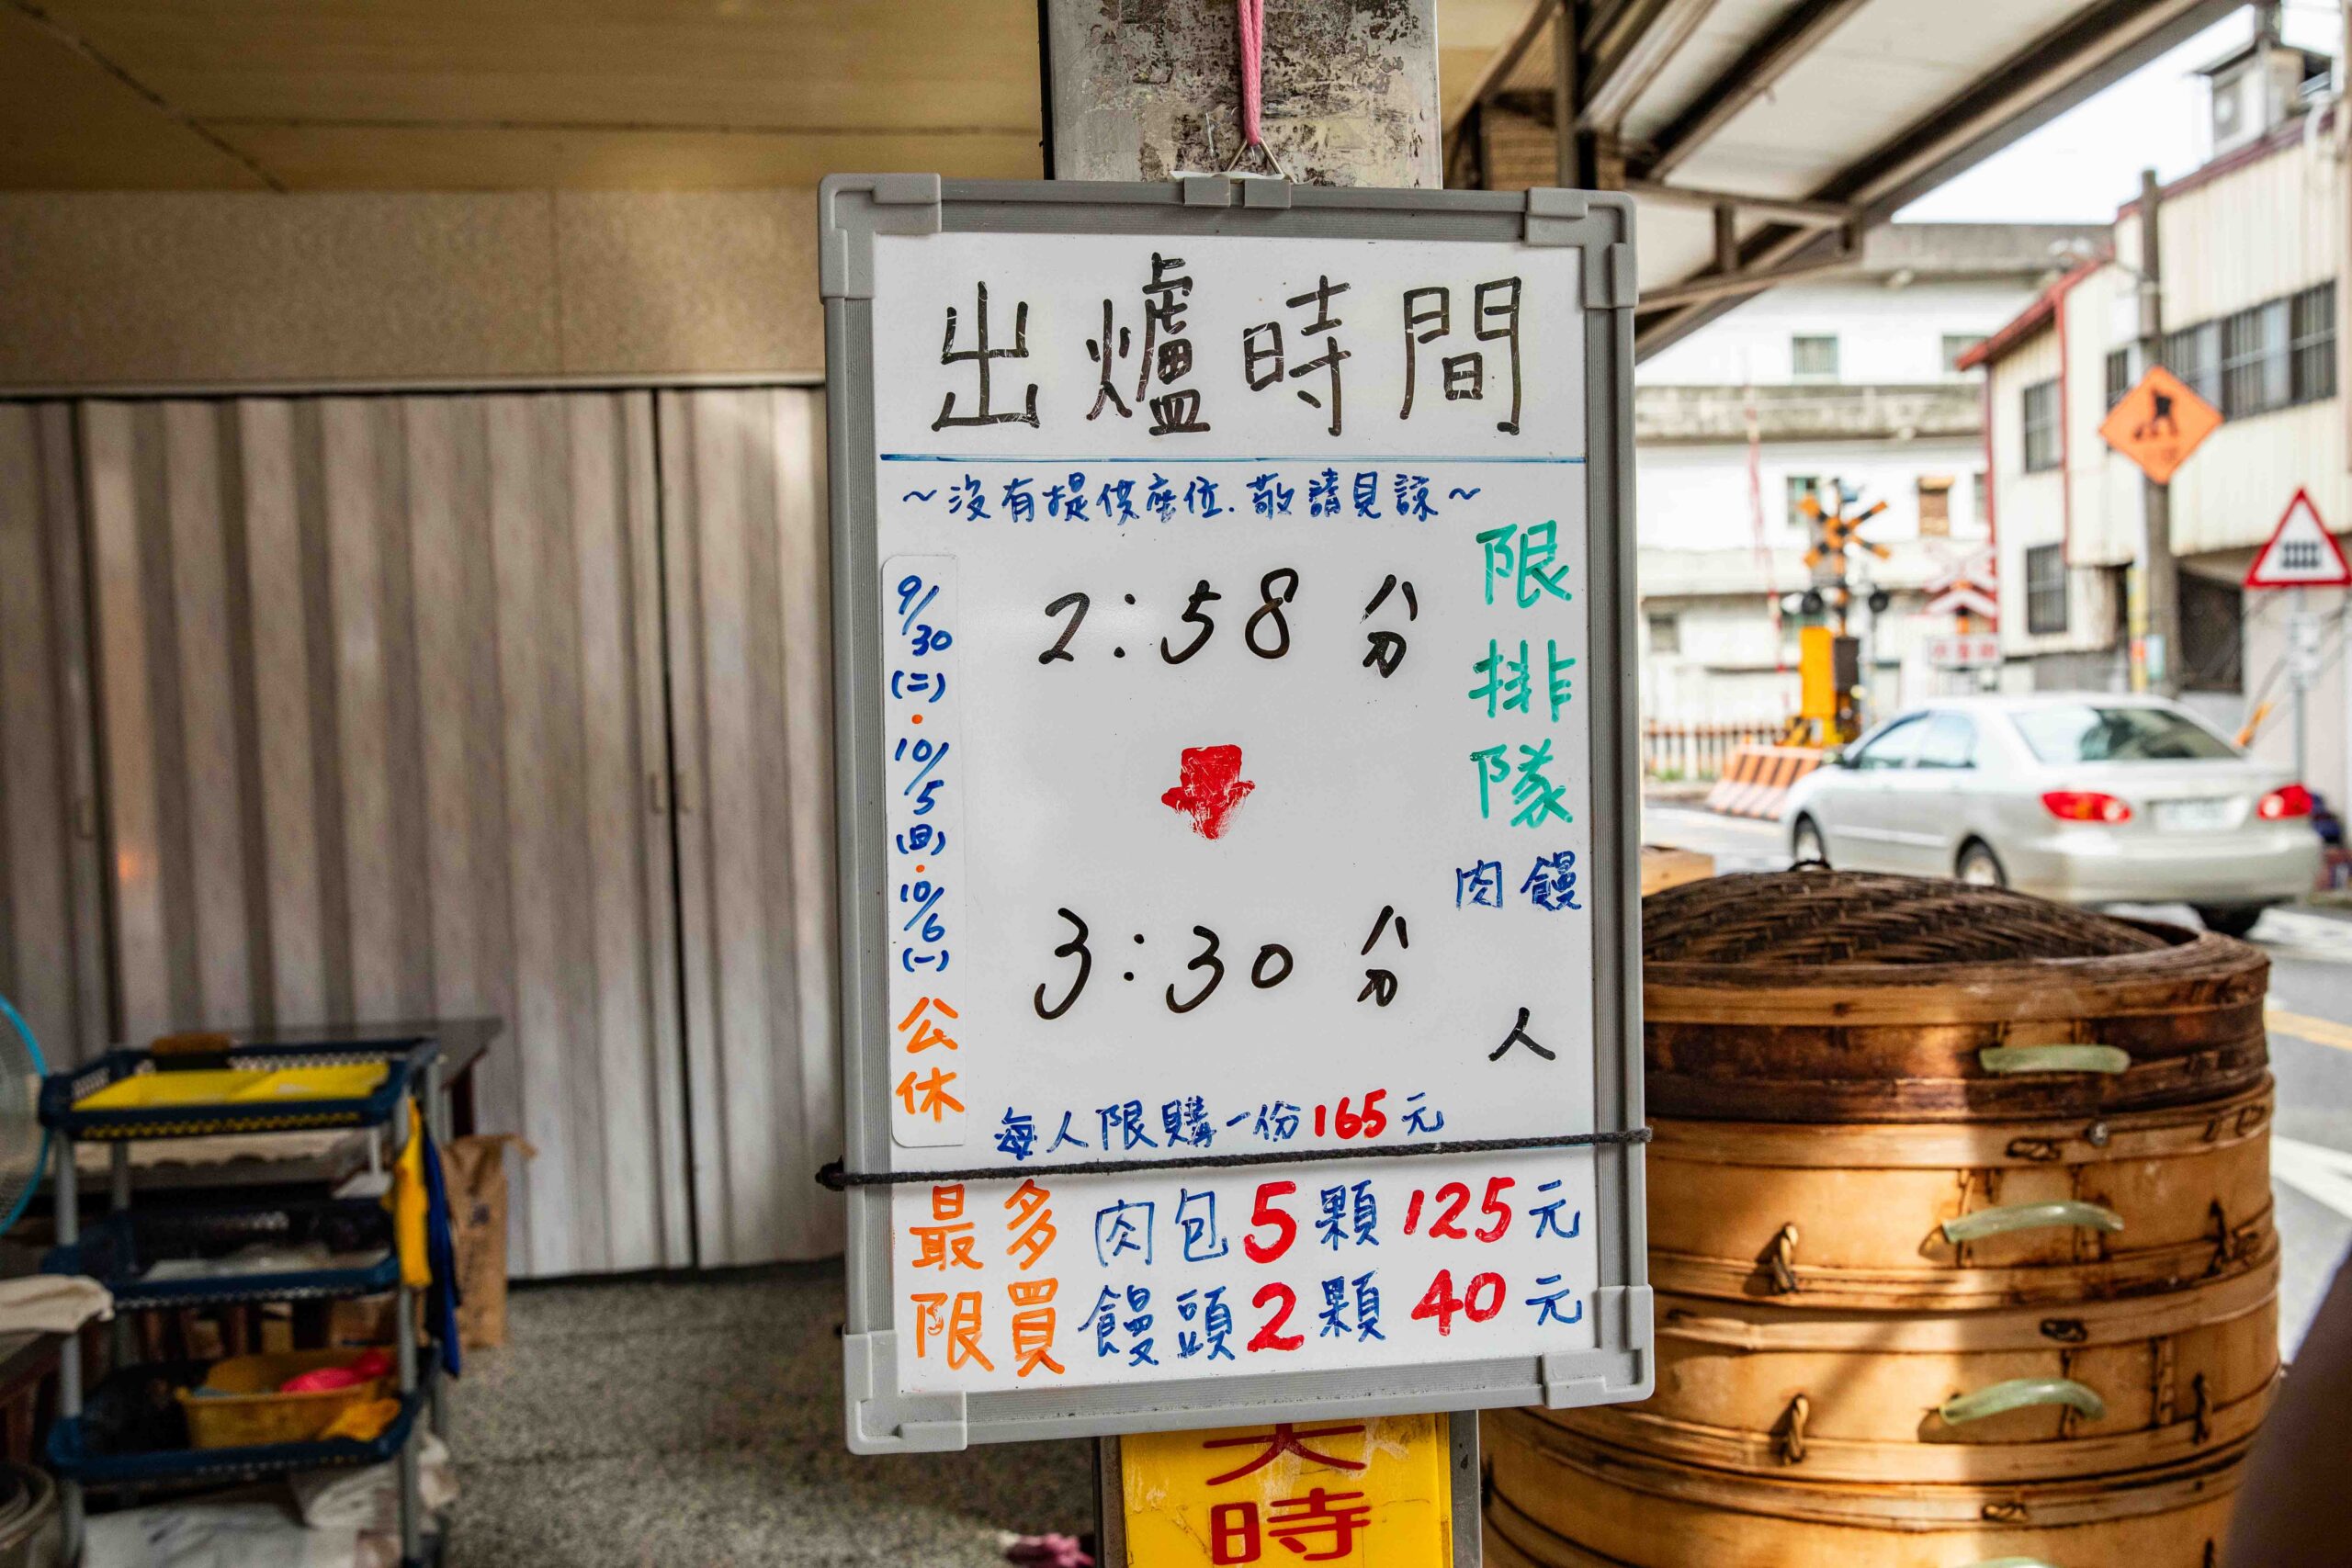 出爐時間
~沒有提供座位.敬請見諒~
9/30
(二)
·
10/5
(日)
·
10/6
(一)
公
休
2:58分
3:30分
限
排
隊
肉饅
人
每人限購一份165元
最多 肉包5顆125元
限買 饅頭2顆40元
時